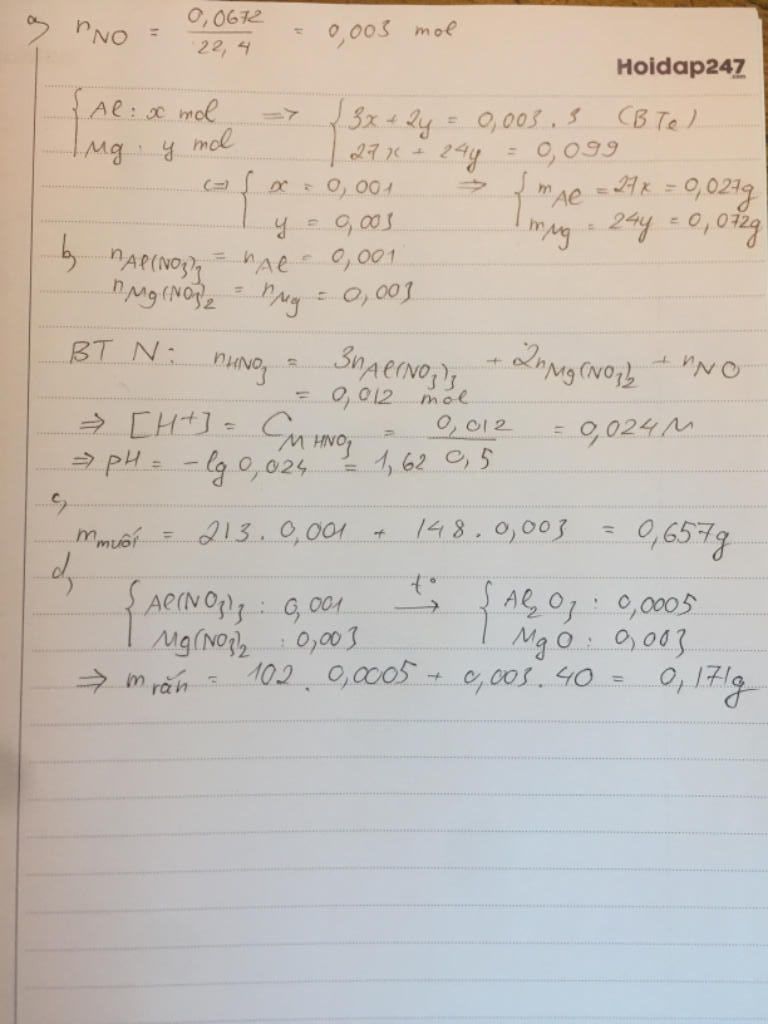 a) nNO = 0,0672 / 22,4 = 0,003 mol
Hoidap247.com
{ Al : x mol => { 3x + 2y = 0,003 . 3 (BTe)
Mg : y mol 27x + 24y = 0,099
<=> { x = 0,001 => { mAl = 27x = 0,027g
y = 0,003 mMg = 24y = 0,072g
b) nAl(NO3)3 = nAl = 0,001
nMg(NO3)2 = nMg = 0,003
BT N: nHNO3 = 3nAl(NO3)3 + 2nMg(NO3)2 + nNO
= 0,012 mol
=> [H+] = CM HNO3 = 0,012 / 0,5 = 0,024M
=> pH = -lg 0,024 = 1,62
c,
mmuối = 213 . 0,001 + 148 . 0,003 = 0,657g
d,
{ Al(NO3)3 : 0,001 t° → { Al2O3 : 0,0005
Mg(NO3)2 : 0,003 MgO : 0,003
=> mrắn = 102 . 0,0005 + 0,003 . 40 = 0,171g